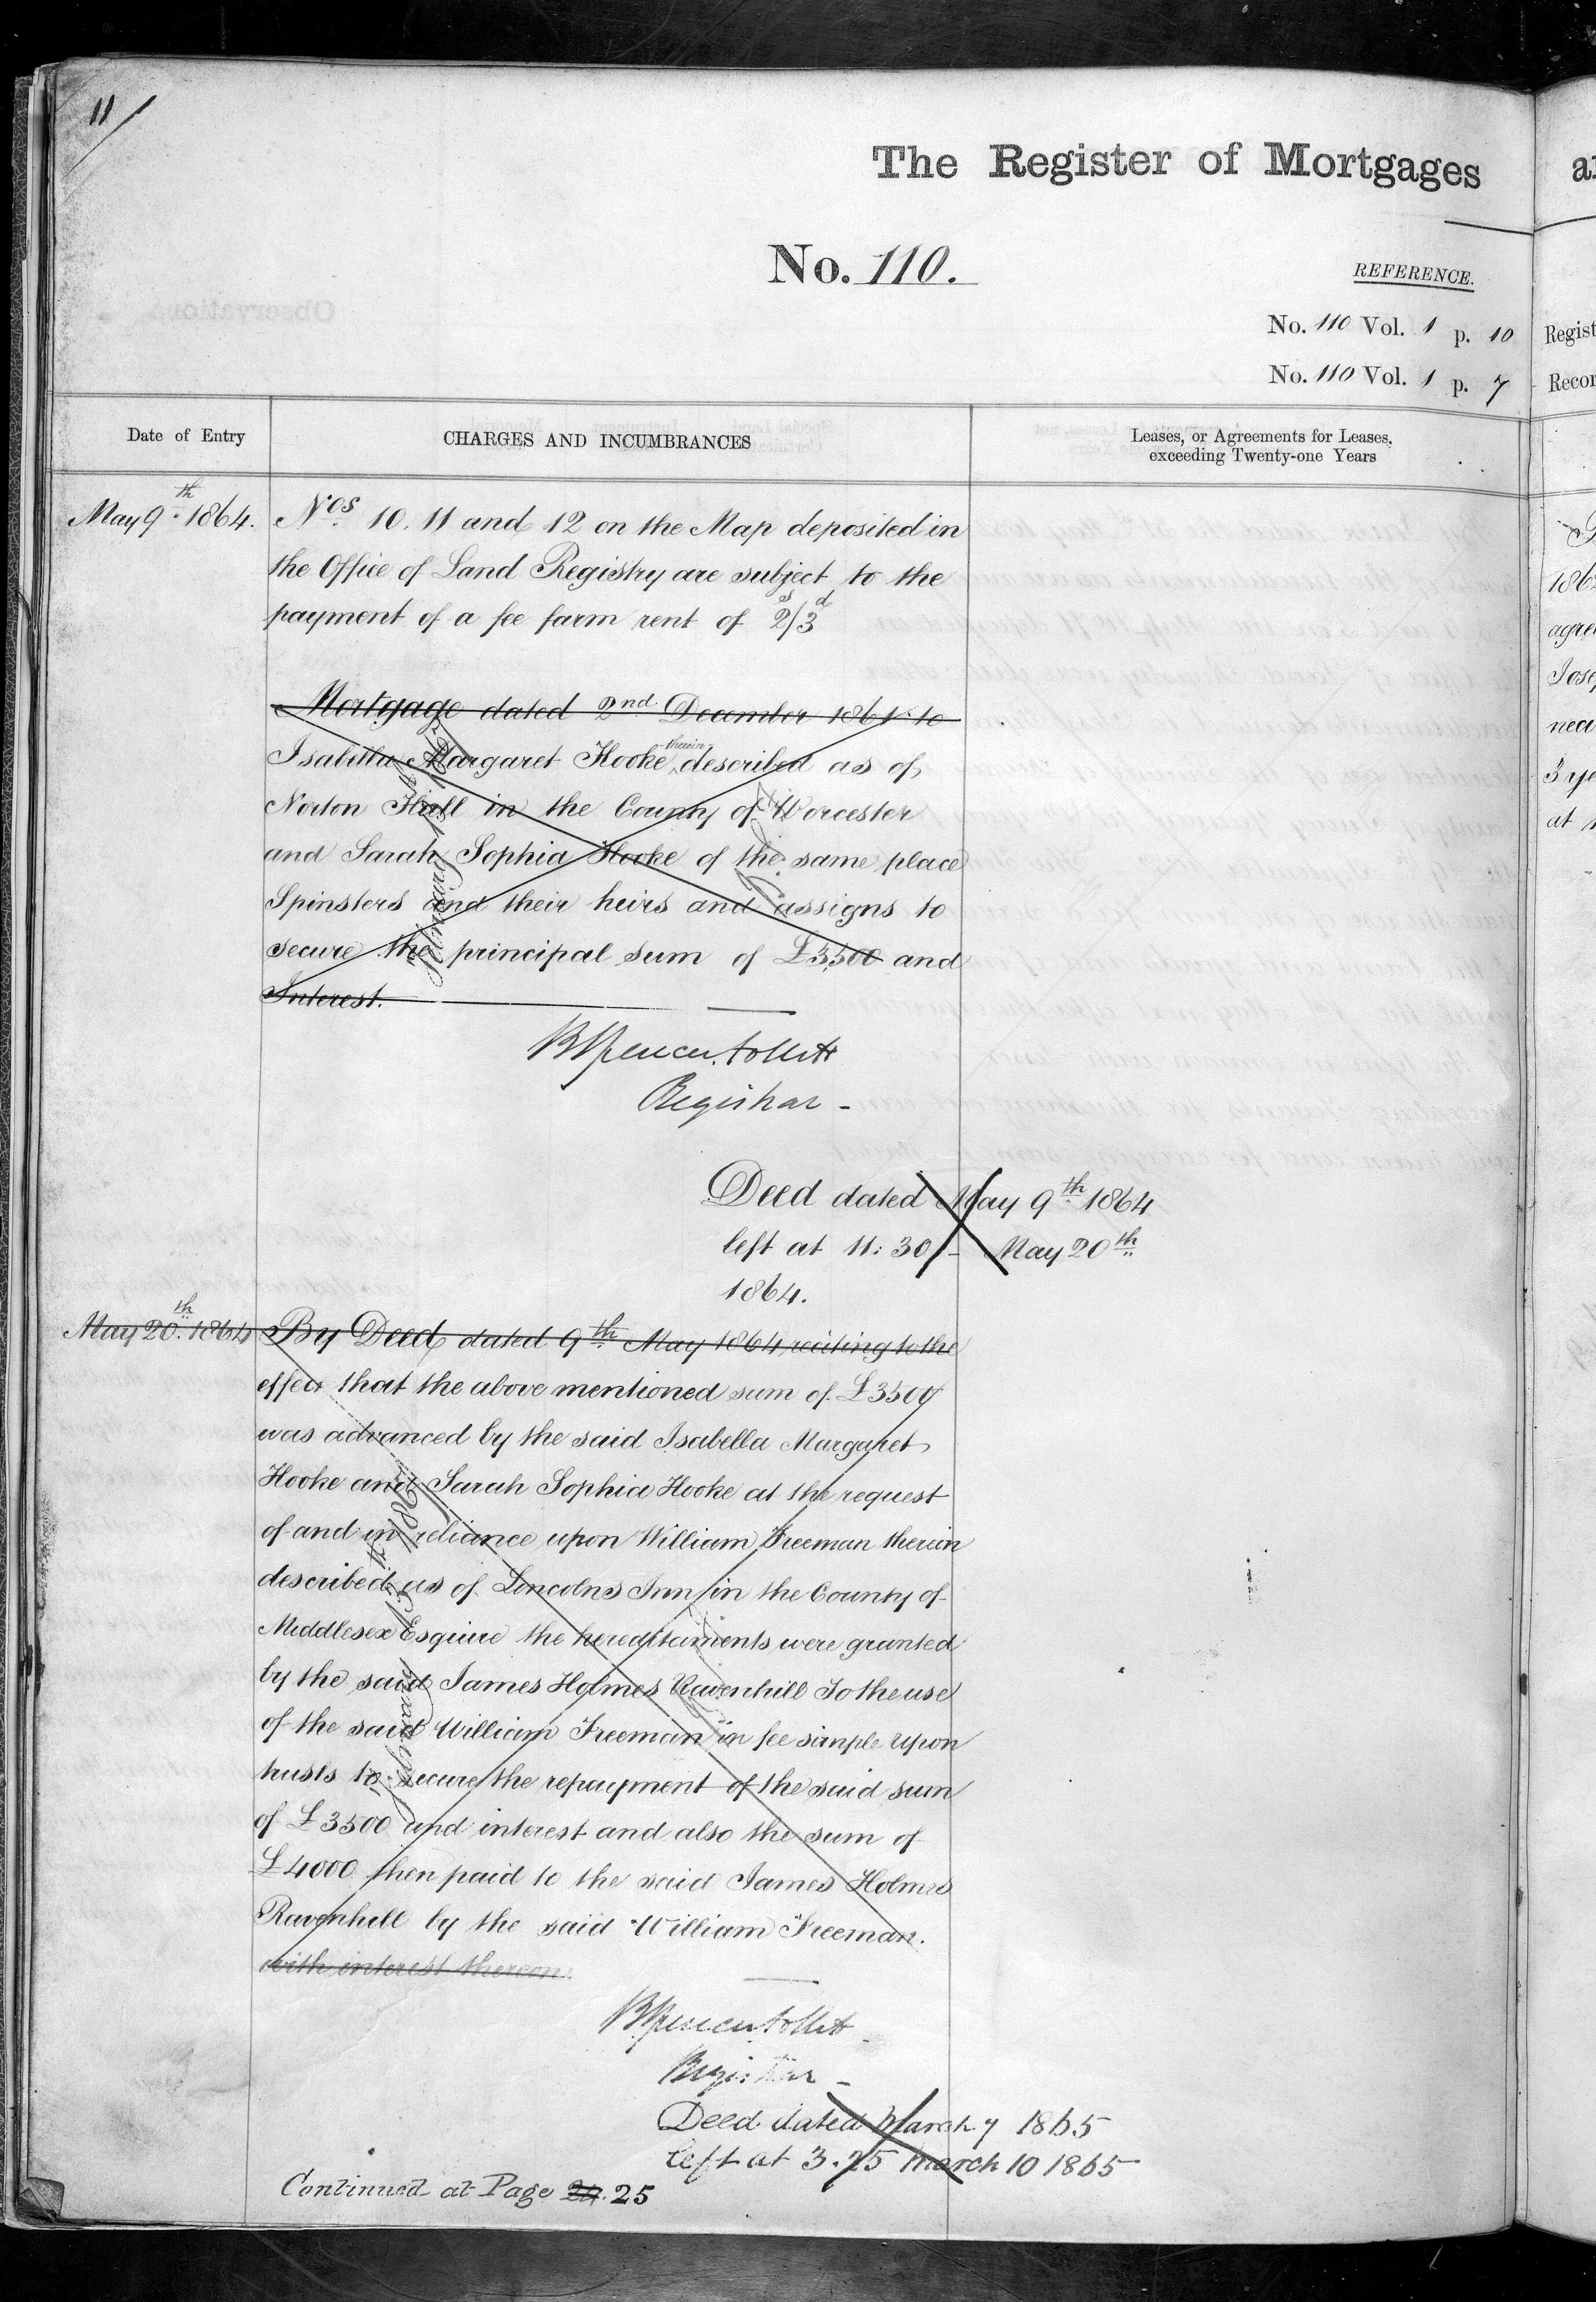 11
The Register of Mortgages
No. 110.
REFERENCE.
No. 110 Vol. 1 p. 10
No. 110 Vol. 1 p. 7
Regist
Recor
Date of Entry
CHARGES AND INCUMBRANCES
Leases, or Agreements for Leases,
exceeding Twenty-one Years
May 9th 1864. Nos 10. 11 and 12 on the Map deposited in
the Office of Land Registry are subject to the
payment of a fee farm rent of 2s/3d
Mortgage dated 2nd December 1861 to
Isabella Margaret Hooke therein described as of
Norton Hall in the County of Worcester
and Sarah Sophia Hooke of the same place
Spinsters and their heirs and assigns to
secure the principal sum of £3,500 and
Interest.
B Spencer Follett
Registrar -
Deed dated May 9th 1864
left at 11:30 - May 20th
1864.
May 20th 1864 By Deed dated 9th May 1864 reciting to the
effect that the above mentioned sum of £3500
was advanced by the said Isabella Margaret
Hooke and Sarah Sophia Hooke at the request
of and in reliance upon William Freeman therein
described as of Lincolns Inn in the County of
Middlesex Esquire the hereditaments were granted
by the said James Holmes Ravenhill To the use
of the said William Freeman in fee simple upon
trusts to secure the repayment of the said sum
of £3500 and interest and also the sum of
£4000 then paid to the said James Holmes
Ravenhill by the said William Freeman.
with interest thereon.
B Spencer Follett
Registrar -
Deed dated March 7 1865
left at 3.25 March 10 1865
Continued at Page 24. 25